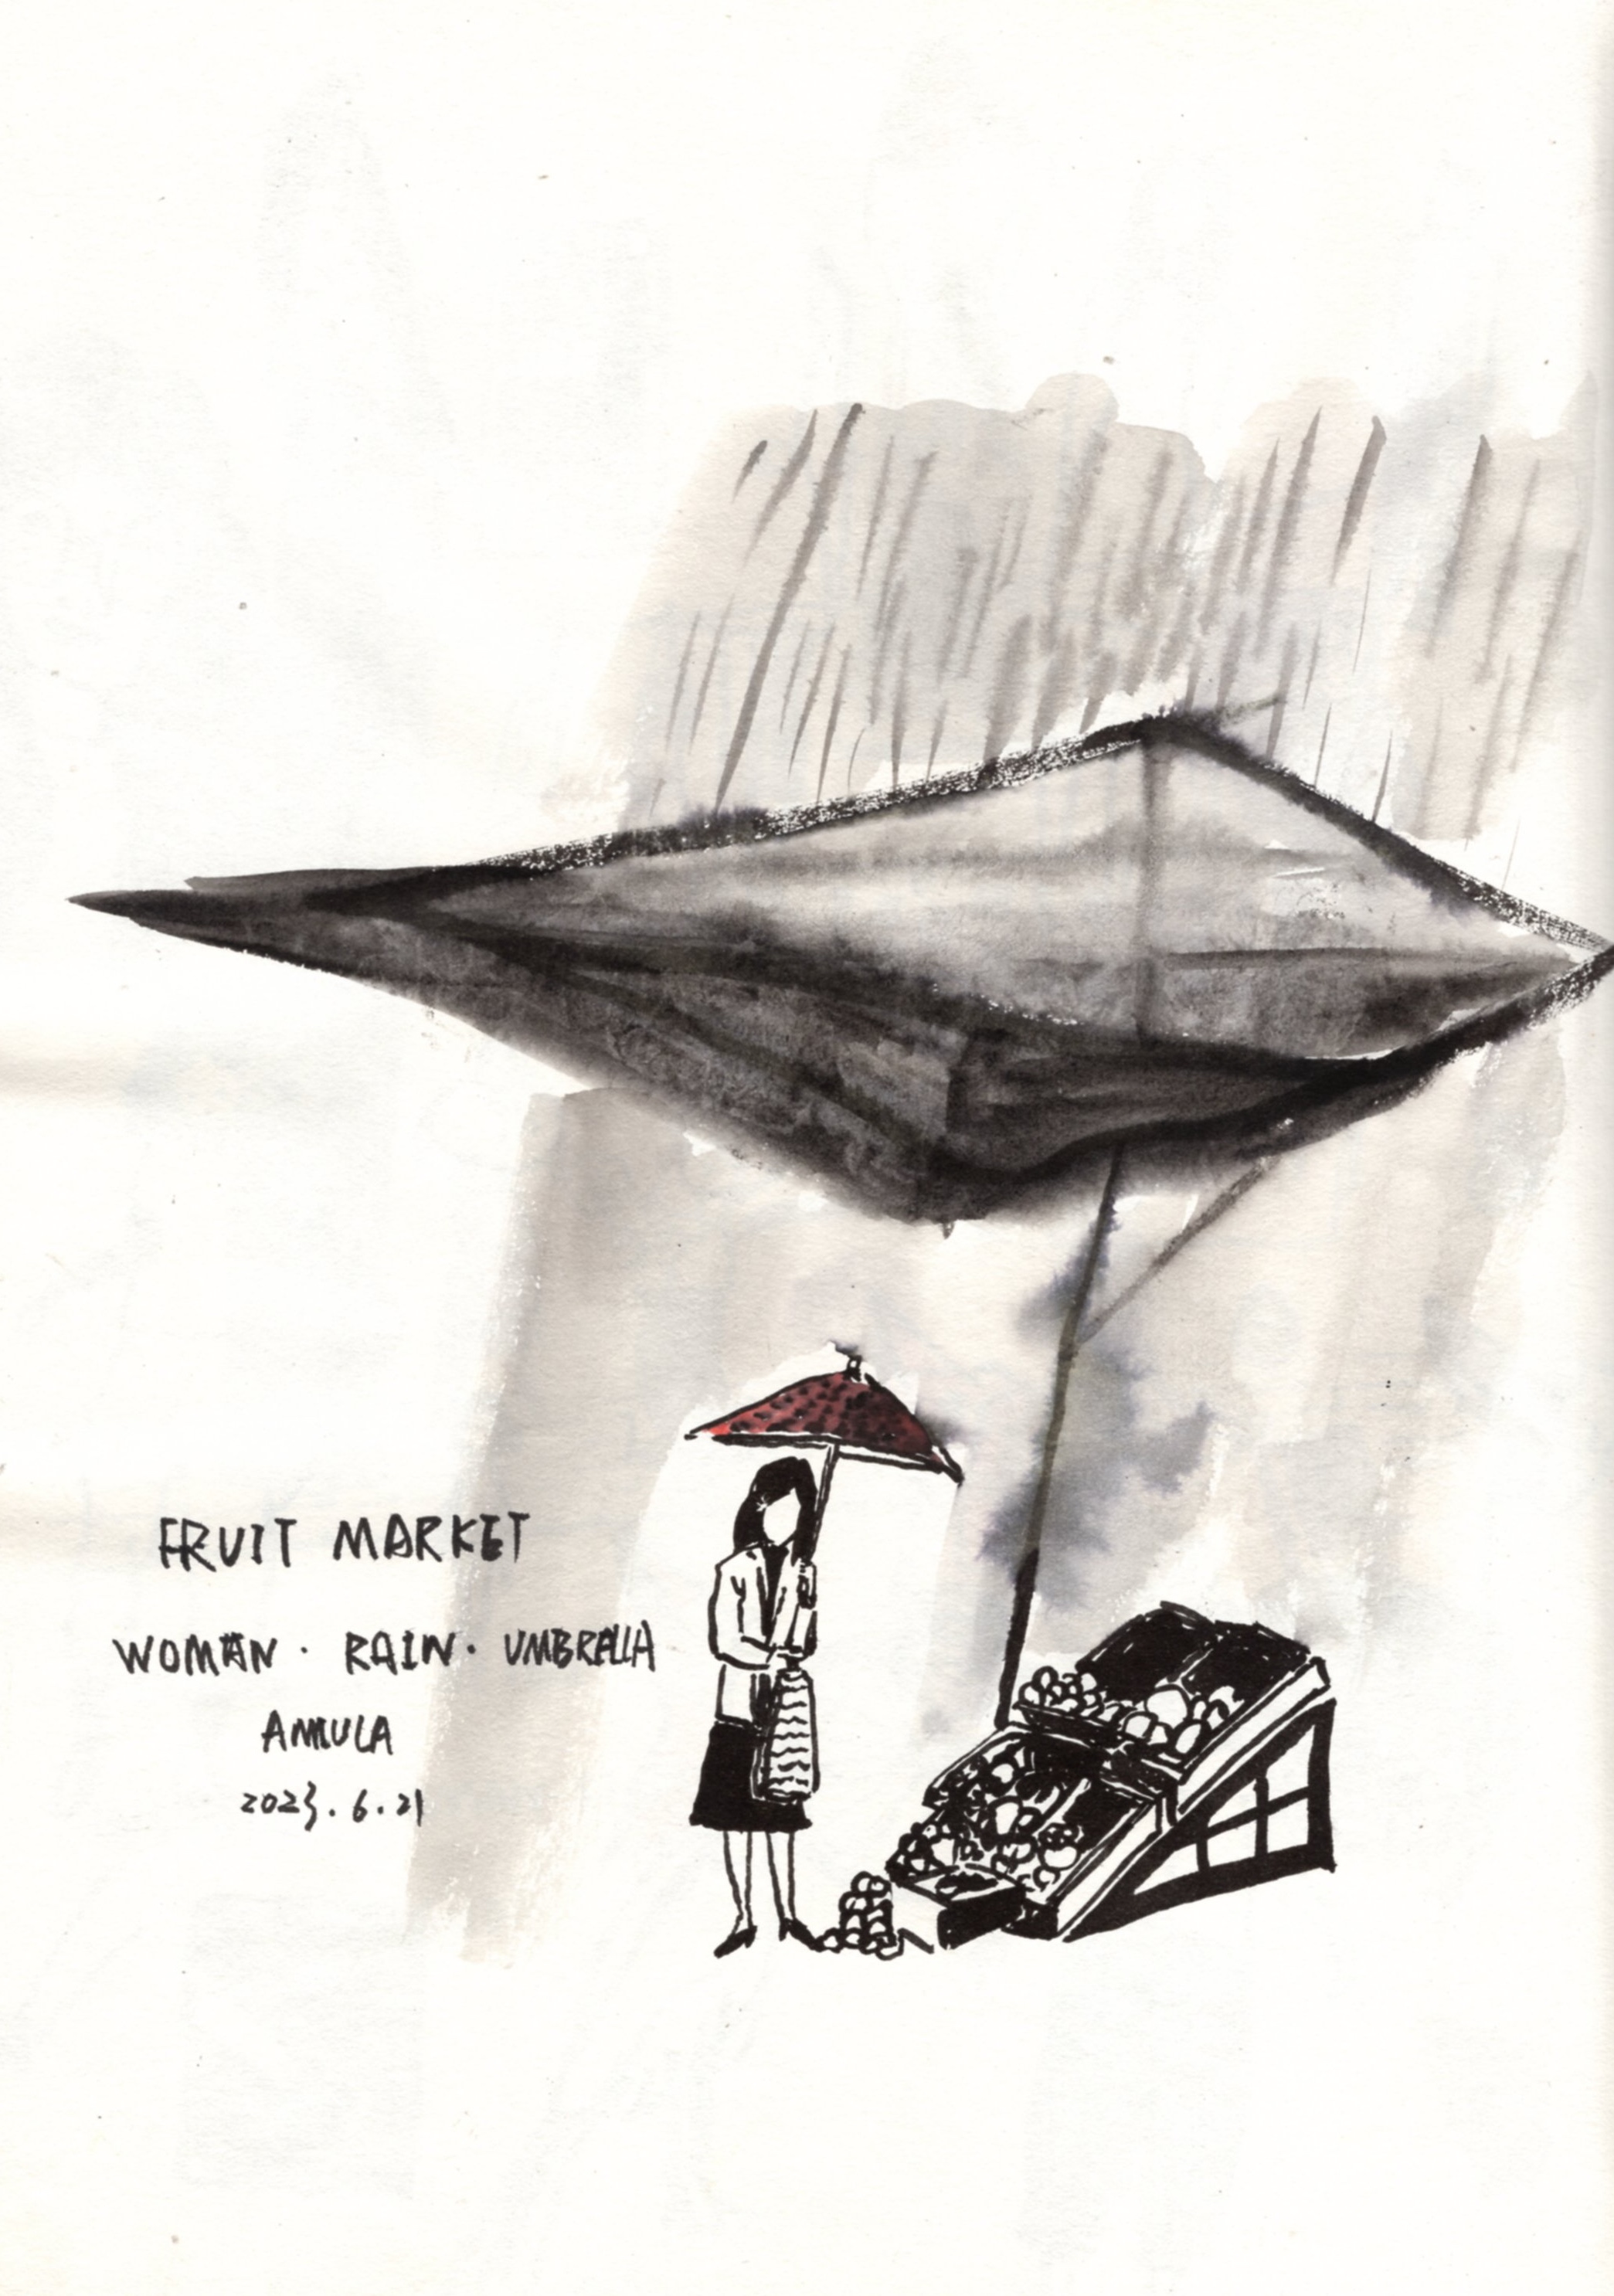 FRUIT MARKET
WOMAN · RAIN · UMBRELLA
ANNULA
2023.6.21